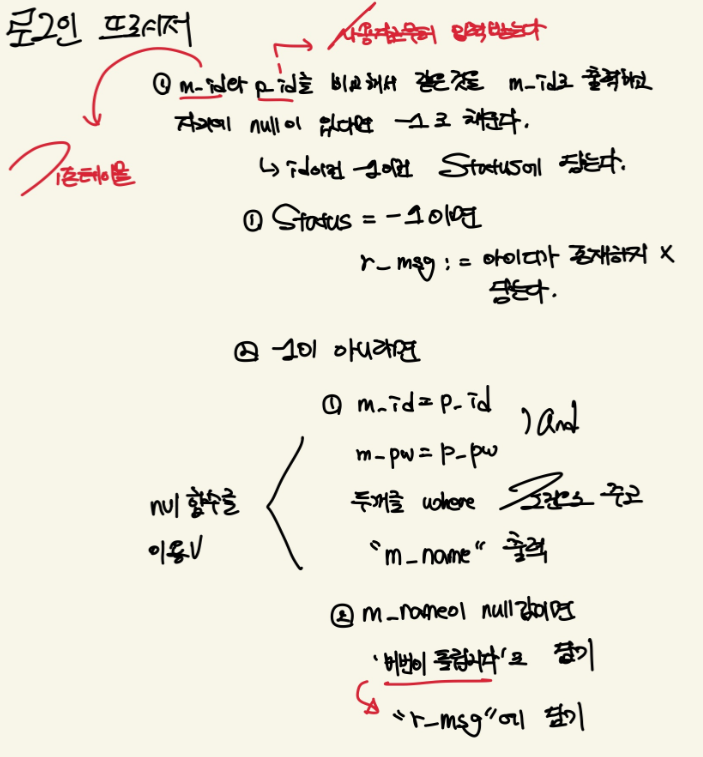 로그인 프로시저
사용자로부터 입력받는다
① m_id와 p_id를 비교해서 같은것을 m_id로 출력하고
null이 있다면 -1로 채운다.
기존테이블
↳ id이건 -1이건 Status에 담는다.
① Status = -1이면
r_msg := 아이디가 존재하지 X
담는다.
② -1이 아니라면
① m_id = p_id
m_pw = p_pw
) And
두개를 where 조건으로 주고
"m_name" 출력
nvl 함수를
이용V
② m_name이 null값이면
'비번이 틀립니다'로 담기
"r_msg"에 담기